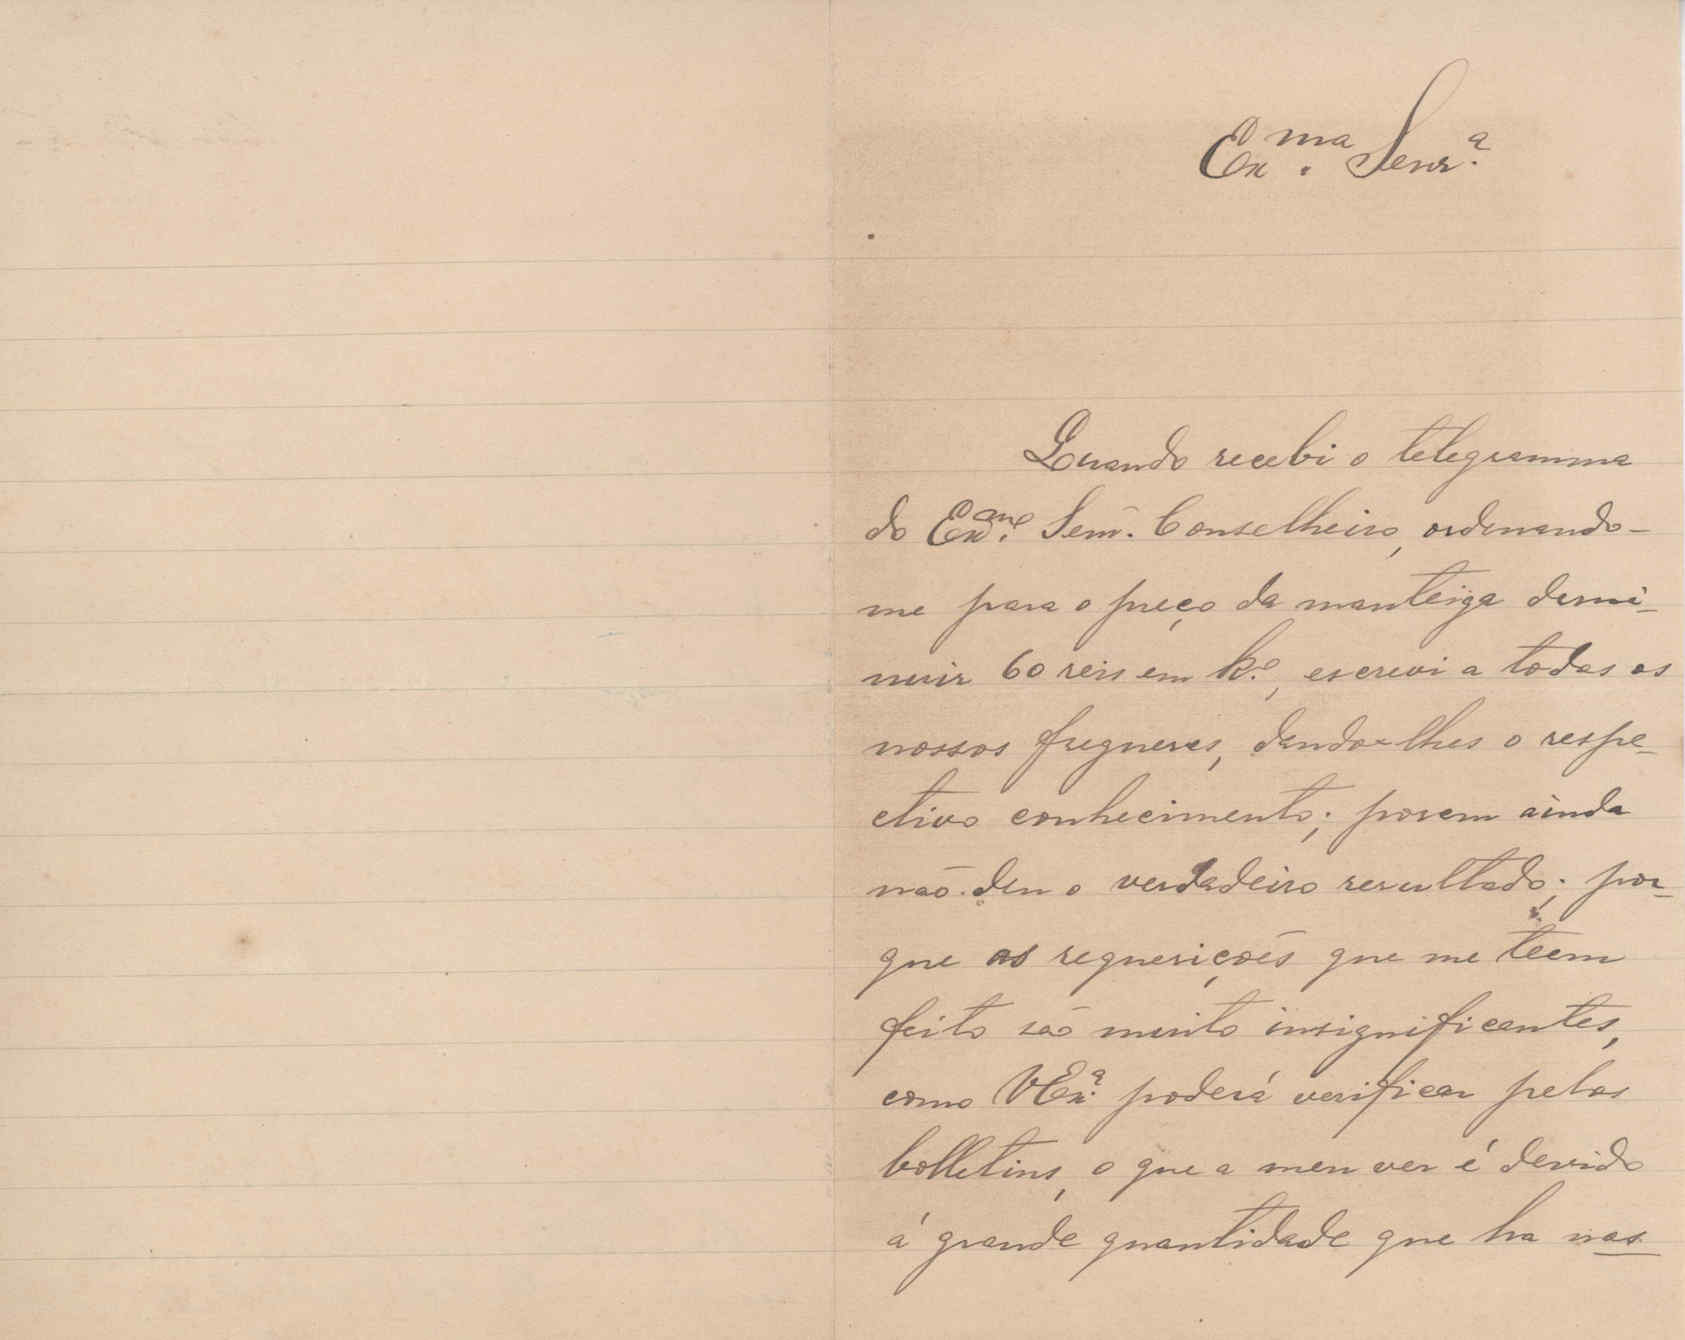 Ex.ma Senr.ª
Quando recebi o telegramma
do Ex.mo Senr. Conselheiro, ordenando-
me para o preço da manteiga demi-
nuir 60 reis em k.º, escrevi a todos os
nossos freguezes, dando-lhes o respe-
ctivo conhecimento; porem ainda
não deu o verdadeiro resultado; por-
que as requerições que me teem
feito são muito insignificantes,
como VEx.ª poderá verificar pelos
bolletins, o que a meu ver é devido
á grande quantidade que ha nas